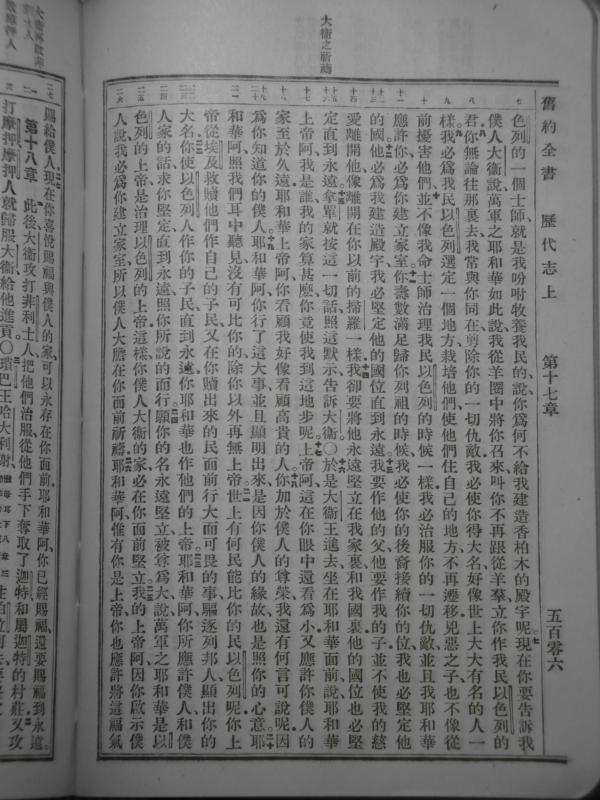 舊約全書 歷代志上 第十七章 五百零六
大衛之祈禱
色列的一個士師就是我吩咐牧養我民的說你爲何不給我建造香柏木的殿宇呢現在你要告訴我
僕人大衛說萬軍之耶和華如此說我從羊圈中將你召來叫你不再跟從羊羣立你作我民以色列的
君你無論往那裏去我常與你同在剪除你的一切仇敵我必使你得大名好像世上大大有名的人一
樣我必爲我民以色列選定一個地方栽培他們使他們住自己的地方不再遷移兇惡之子也不像從
前擾害他們並不像我命士師治理我民以色列的時候一樣我必治服你的一切仇敵並且我耶和華
應許你必爲你建立家室你壽數滿足歸你列祖的時候我必使你的後裔接續你的位我也必堅定他
的國他必爲我建造殿宇我必堅定他的國位直到永遠我要作他的父他要作我的子並不使我的慈
愛離開他像離開在你以前的掃羅一樣我卻要將他永遠堅立在我家裏和我國裏他的國位也必堅
定直到永遠拿單就按這一切話照這默示告訴大衛○於是大衛王進去坐在耶和華面前說耶和華
上帝阿我是誰我的家算甚麼你竟使我到這地步呢上帝阿這在你眼中還看爲小又應許你僕人的
家至於久遠耶和華上帝阿你看顧我好像看顧高貴的人你加於僕人的尊榮我還有何言可說呢因
爲你知道你的僕人耶和華阿你行了這大事並且顯明出來是因你僕人的緣故也是照你的心意耶
和華阿照我們耳中聽見沒有可比你的除你以外再無上帝世上有何民能比你的民以色列呢你上
帝從埃及救贖他們作自己的子民又在你贖出來的民面前行大而可畏的事驅逐列邦人顯出你的
大名你使以色列人作你的子民直到永遠你耶和華也作他們的上帝耶和華阿你所應許僕人和僕
人家的話求你堅定直到永遠照你所說的而行願你的名永遠堅立被尊爲大說萬軍之耶和華是以
色列的上帝是治理以色列的上帝這樣你僕人大衛的家必在你面前堅立我的上帝阿因你啟示僕
人說我必爲你建立家室所以僕人大膽在你面前祈禱耶和華阿惟有你是上帝你也應許將這福氣
賜給僕人現在你喜悅賜福與僕人的家可以永存在你面前耶和華阿你已經賜福還要賜福到永遠
第十八章 此後大衛攻打非利士人把他們治服從他們手下奪取了迦特和屬迦特的村莊又攻
打摩押摩押人就歸服大衛給他進貢○瑣巴王哈大利謝